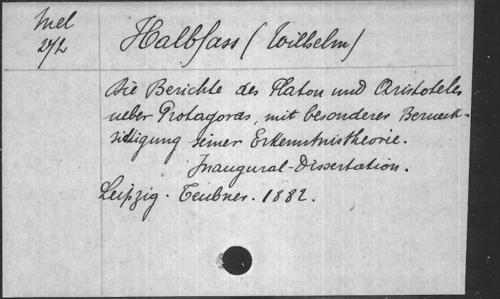 Mel
272
Halbfass (Wilhelm)
Die Berichte des Platon und Aristoteles
ueber Protagoras, mit besonderer Berueck-
sichtigung seiner Erkenntnistheorie.
Inaugural-Dissertation.
Leipzig. Teubner. 1882.